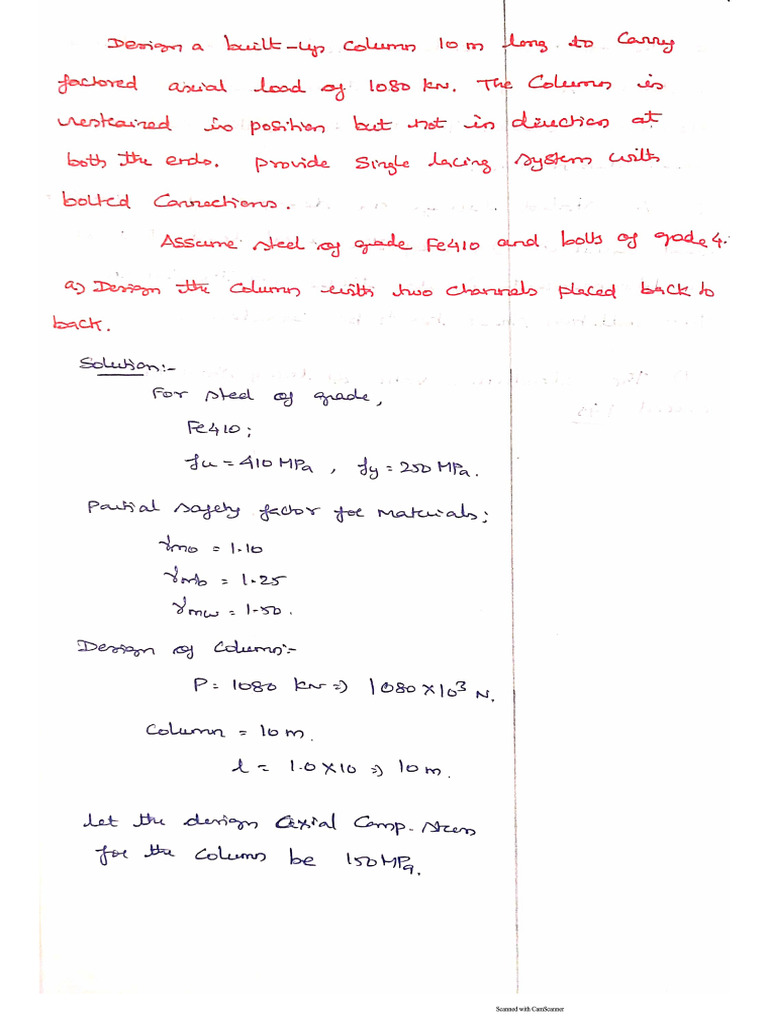 Design a built-up column 10 m long to carry
factored axial load of 1080 kN. The column is
restrained in position but not in direction at
both the ends. provide single lacing system with
bolted connections.
Assume steel of grade Fe410 and bolts of grade 4.
a) Design the column with two channels placed back to
back.
Solution:-
For steel of grade,
Fe410;
fu = 410 MPa , fy = 250 MPa.
Partial safety factor for materials;
γmo = 1.10
γmb = 1.25
γmw = 1.50.
Design of column:-
P = 1080 kN => 1080 x 10³ N.
Column = 10 m.
l = 1.0 x 10 => 10 m.
Let the design axial comp. stress
for the column be 150 MPa.
Scanned with CamScanner